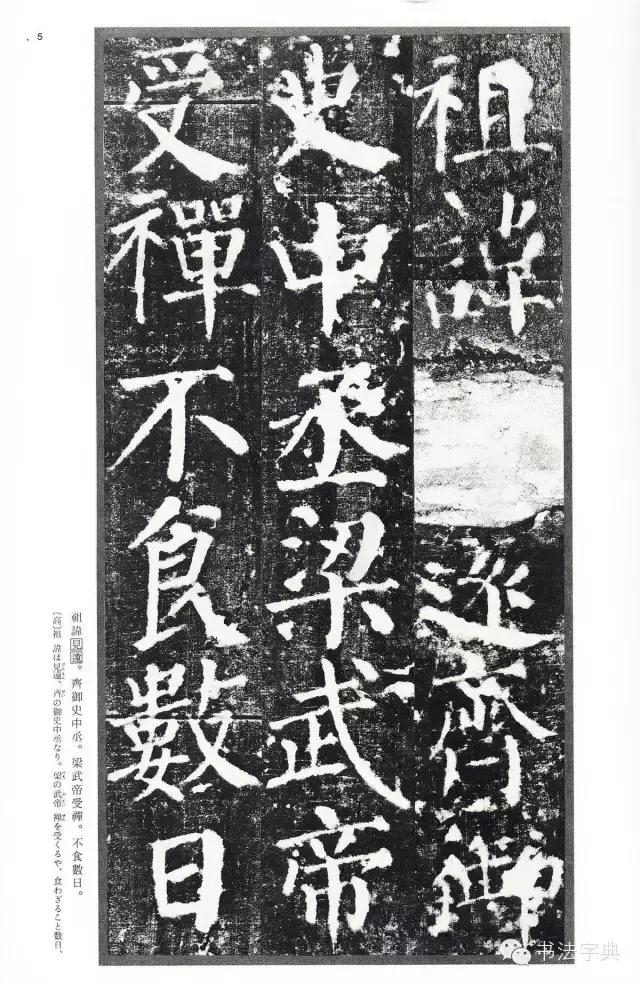 5
祖諱
遠齊御
史中丞梁武帝
受禪不食數日
祖諱見遠。齊御史中丞。梁武帝受禪。不食數日。
[高]祖 諱は見遠、斉の御史中丞なり。梁の武帝 禅を受くるや、食わざること数日、
书法字典